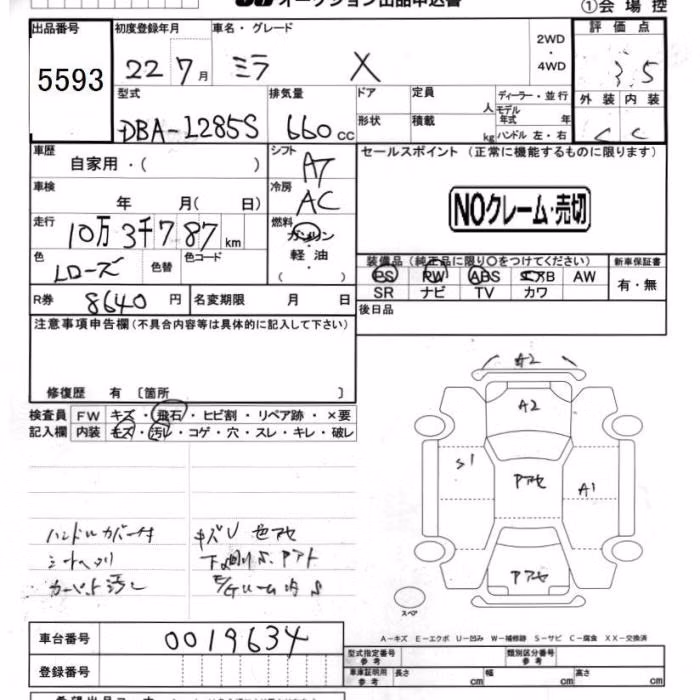 オークション出品申込書
①会場控
出品番号 初度登録年月 車名・グレード 2WD・4WD 評価点
5593 22 7月 ミラ X 3.5
型式 排気量 ドア 定員 人 ディーラー・並行 外装 内装
DBA-L285S 660cc 形状 積載 kg モデル年式 年 ハンドル 左・右 C C
車歴 自家用・( ) シフト AT セールスポイント (正常に機能するものに限ります)
車検 年 月( 日) 冷房 AC
NOクレーム・売切
走行 10万3千787km 燃料 ガソリン・軽油 ( )
色 Lローズ 色替 色コード
装備品 (純正品に限り○をつけてください) 新車保証書
PS PW ABS エアB AW 有・無
SR ナビ TV カワ
R券 8640円 名変期限 月 日
後日品
注意事項申告欄(不具合内容等は具体的に記入して下さい)
修復歴 有 〔箇所 〕
検査員 FW キズ・飛石・ヒビ割・リペア跡・×要
記入欄 内装 キズ・汚レ・コゲ・穴・スレ・キレ・破レ
A2
A2
S1
Pアセ
A1
Pアセ
スペア
ハンドルカバー付 キズU 色アセ
シートヘタリ
カーペット汚レ
A-キズ E-エクボ U-凹み W-補修跡 S-サビ C-腐食 XX-交換済
車台番号 0019634
型式指定番号 参考 類別区分番号 参考
登録番号
車庫証明用 参考 長さ cm 幅 cm 高さ cm